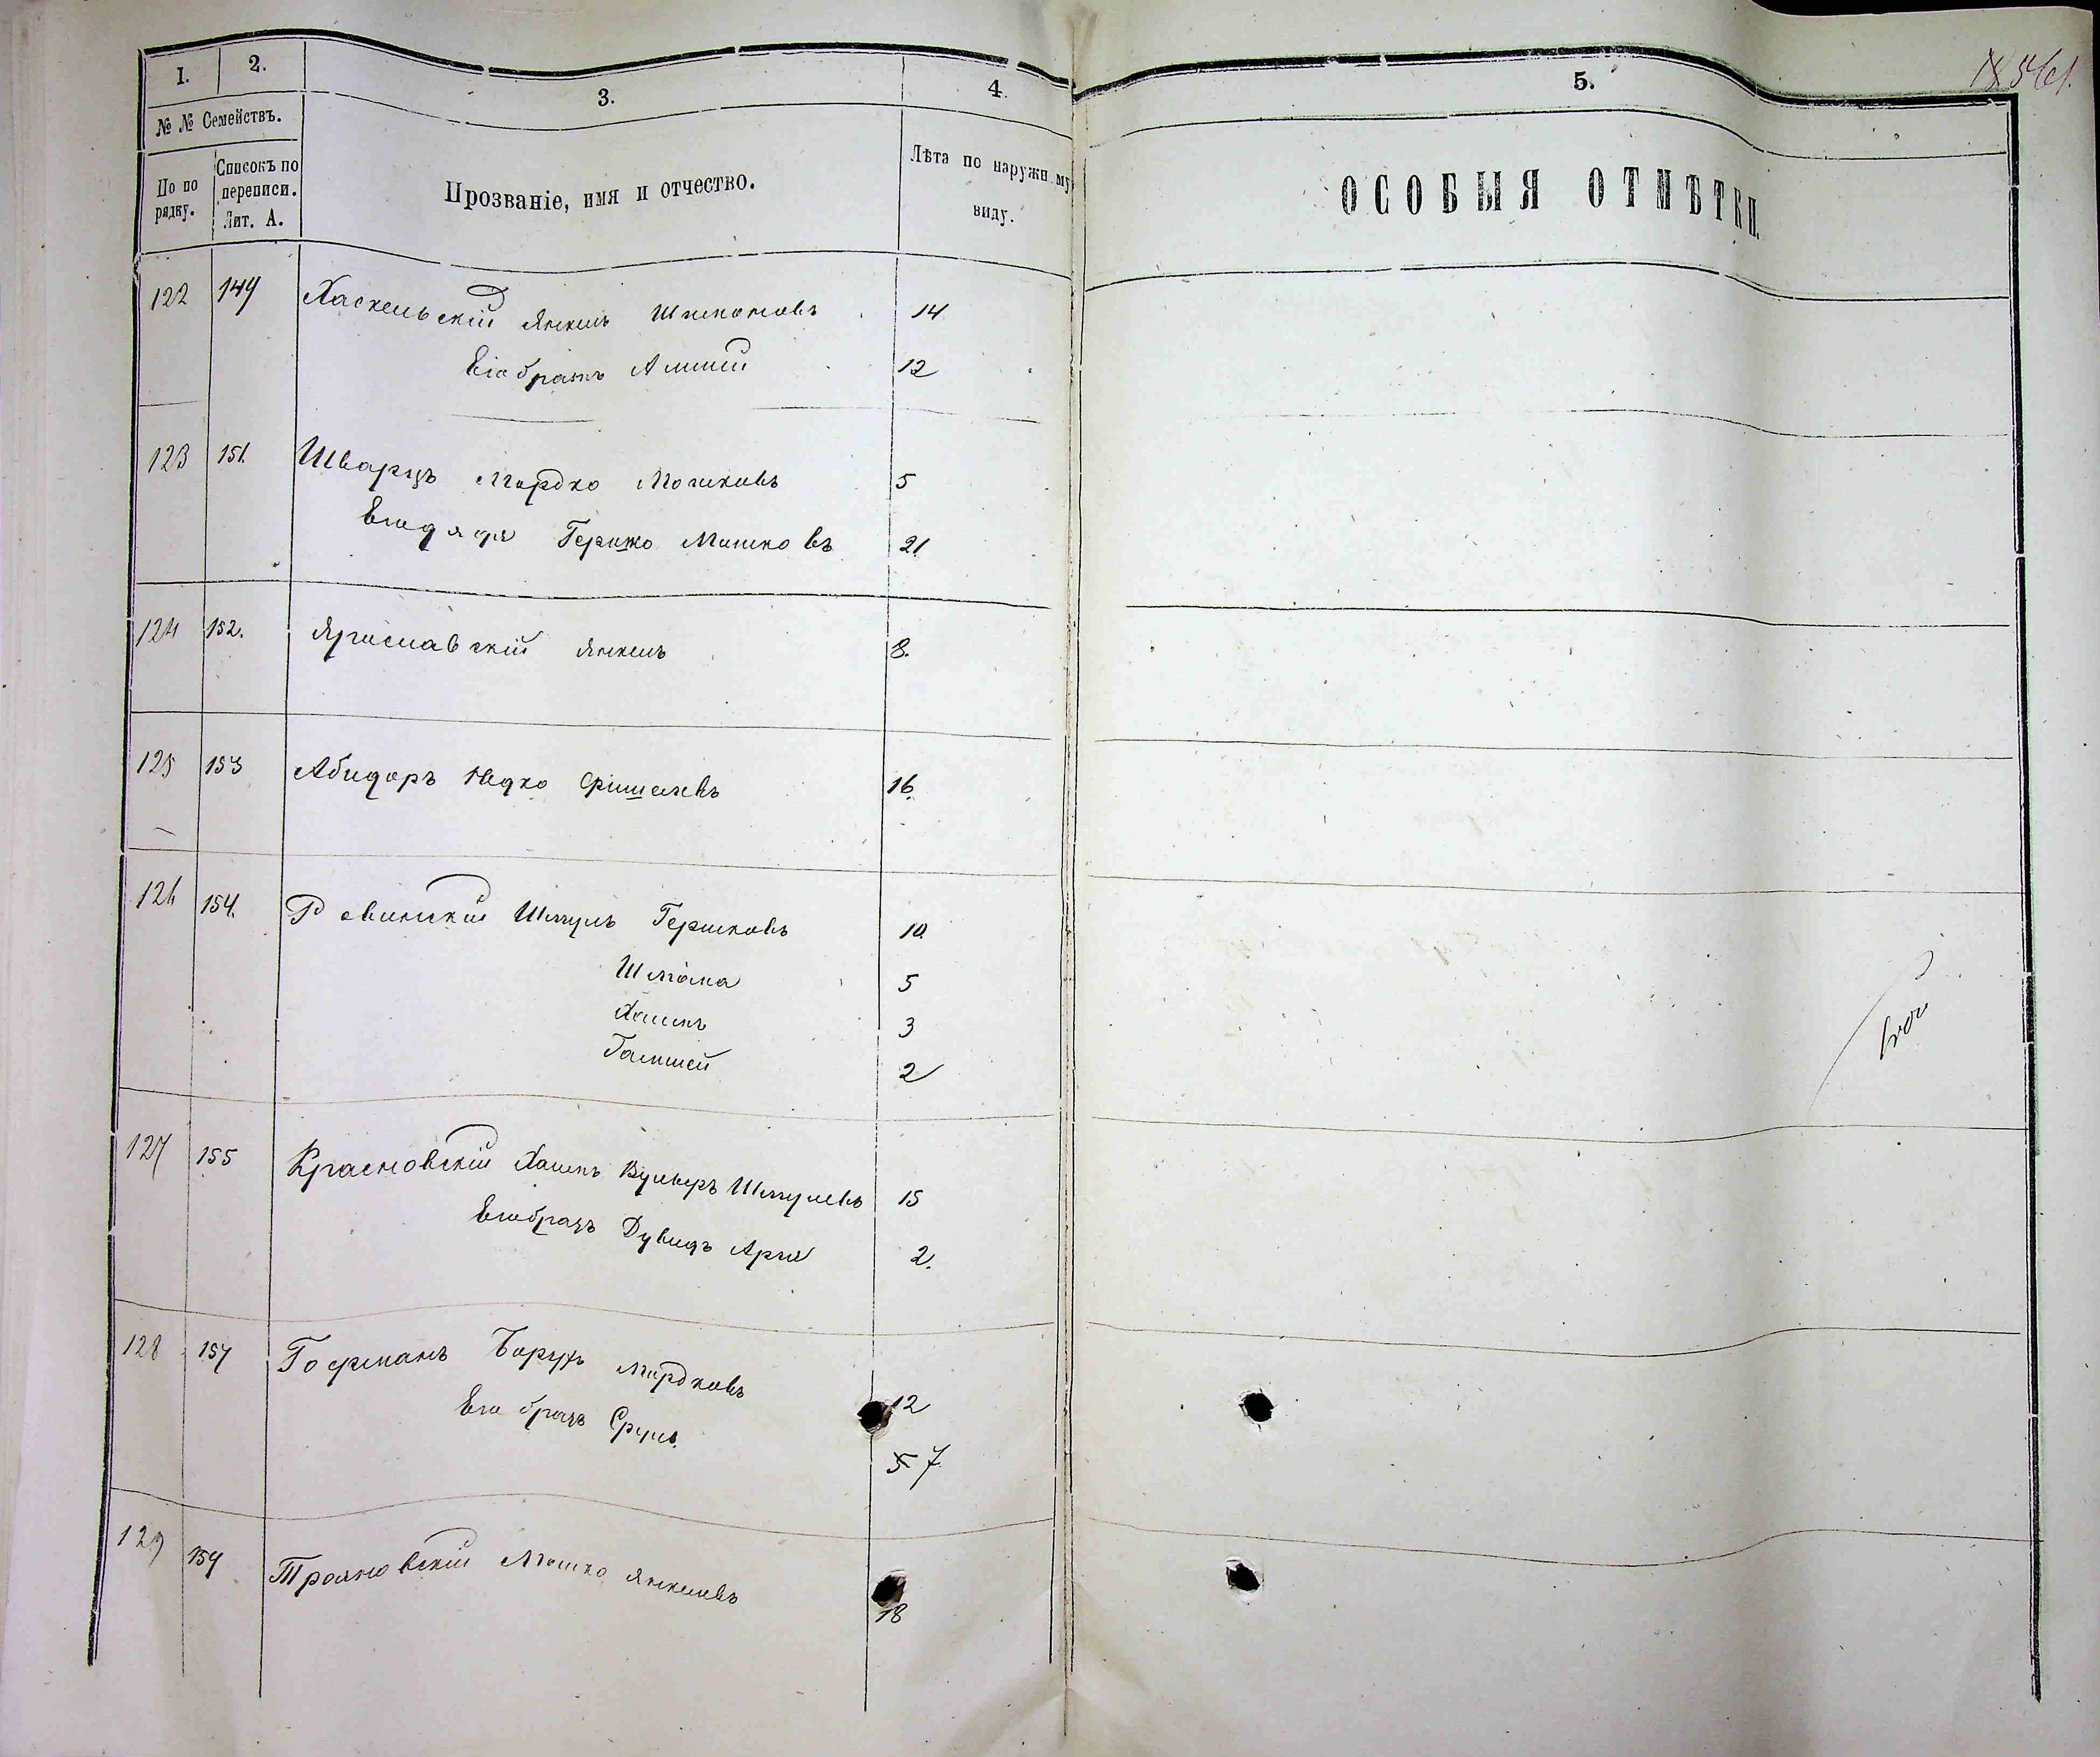 1. 2. 3. 4. 5.
№ № Семействъ.
По по рядку. Списокъ по переписи. Лит. А. Прозваніе, имя и отчество. Лѣта по наружн му виду. ОСОБЫЯ ОТМѢТКИ.
122 149 Хаскельскій Янкель 14
Его братъ 12
123 151. Шварцъ Мордко Мошковъ 5
Его дядя Гершко Мошковъ 21
124 152. Ярославскій Янкель 8.
125 153 Абидоръ Юдко Фишелевъ 16
126 154. Ровинскій Шмуль Гершковъ 10
Шлема 5
Хаимъ 3
2
127 155 Красновскій Хаимъ Вульфъ Шмулевъ 15
Его братъ Дувидъ Арья 2.
128 157 Гофманъ Борухъ Мордковъ 12
Его братъ Сруль. 5 7
129 159 Трояновскій Мошко Янкелевъ 18